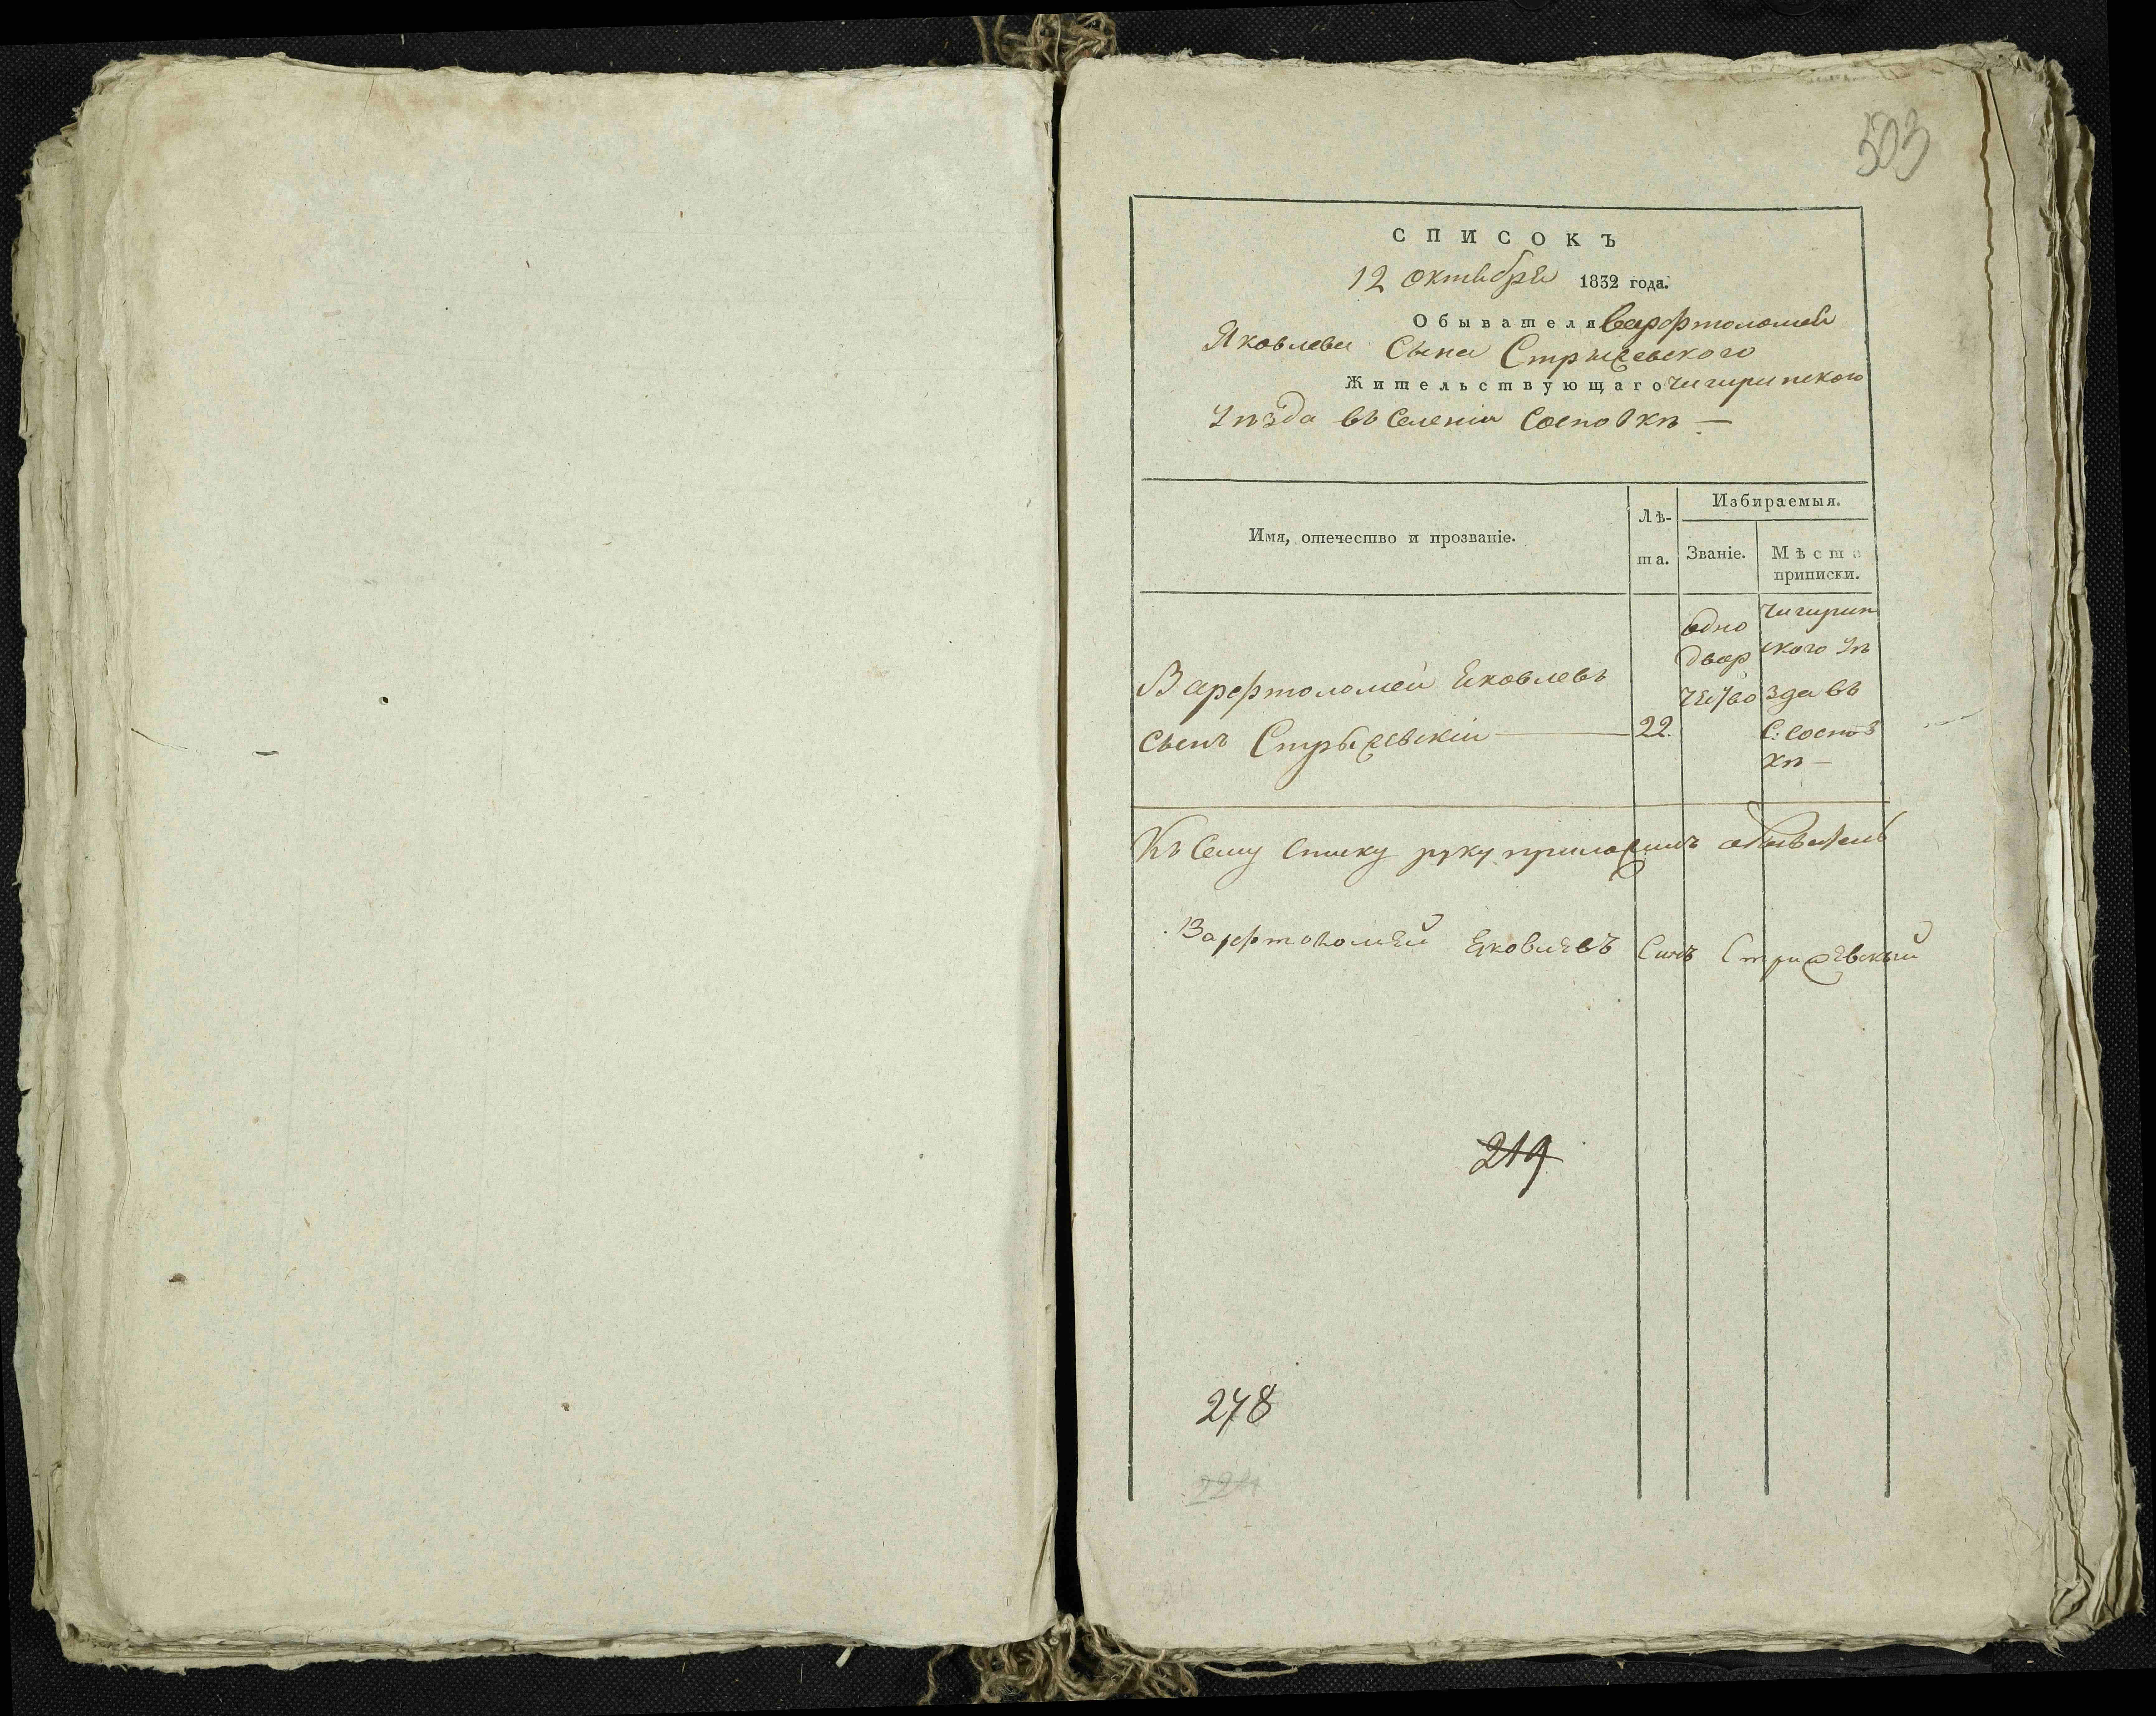 503
СПИСОКЪ
12 октября 1832 года.
Обывателя Варфтоломея
Яковлева Сына Стрыжевского
Жительствующаго Чигиринского
Уѣзда въ Селеніи Сосновкѣ —
Имя, отечество и прозваніе.
Лѣ-
та.
Избираемыя.
Званіе.
Мѣста
приписки.
Варфтоломей Яковлевъ
сынъ Стрыжевскій — 22.
Одно
двор
чество
Чигирин
ского Уѣ
зда въ
С: Сосnов
кѣ —
Къ Сему списку руку приложилъ обыватель
Варфтоломей Яковлевъ Синъ Стрижевский
219
278